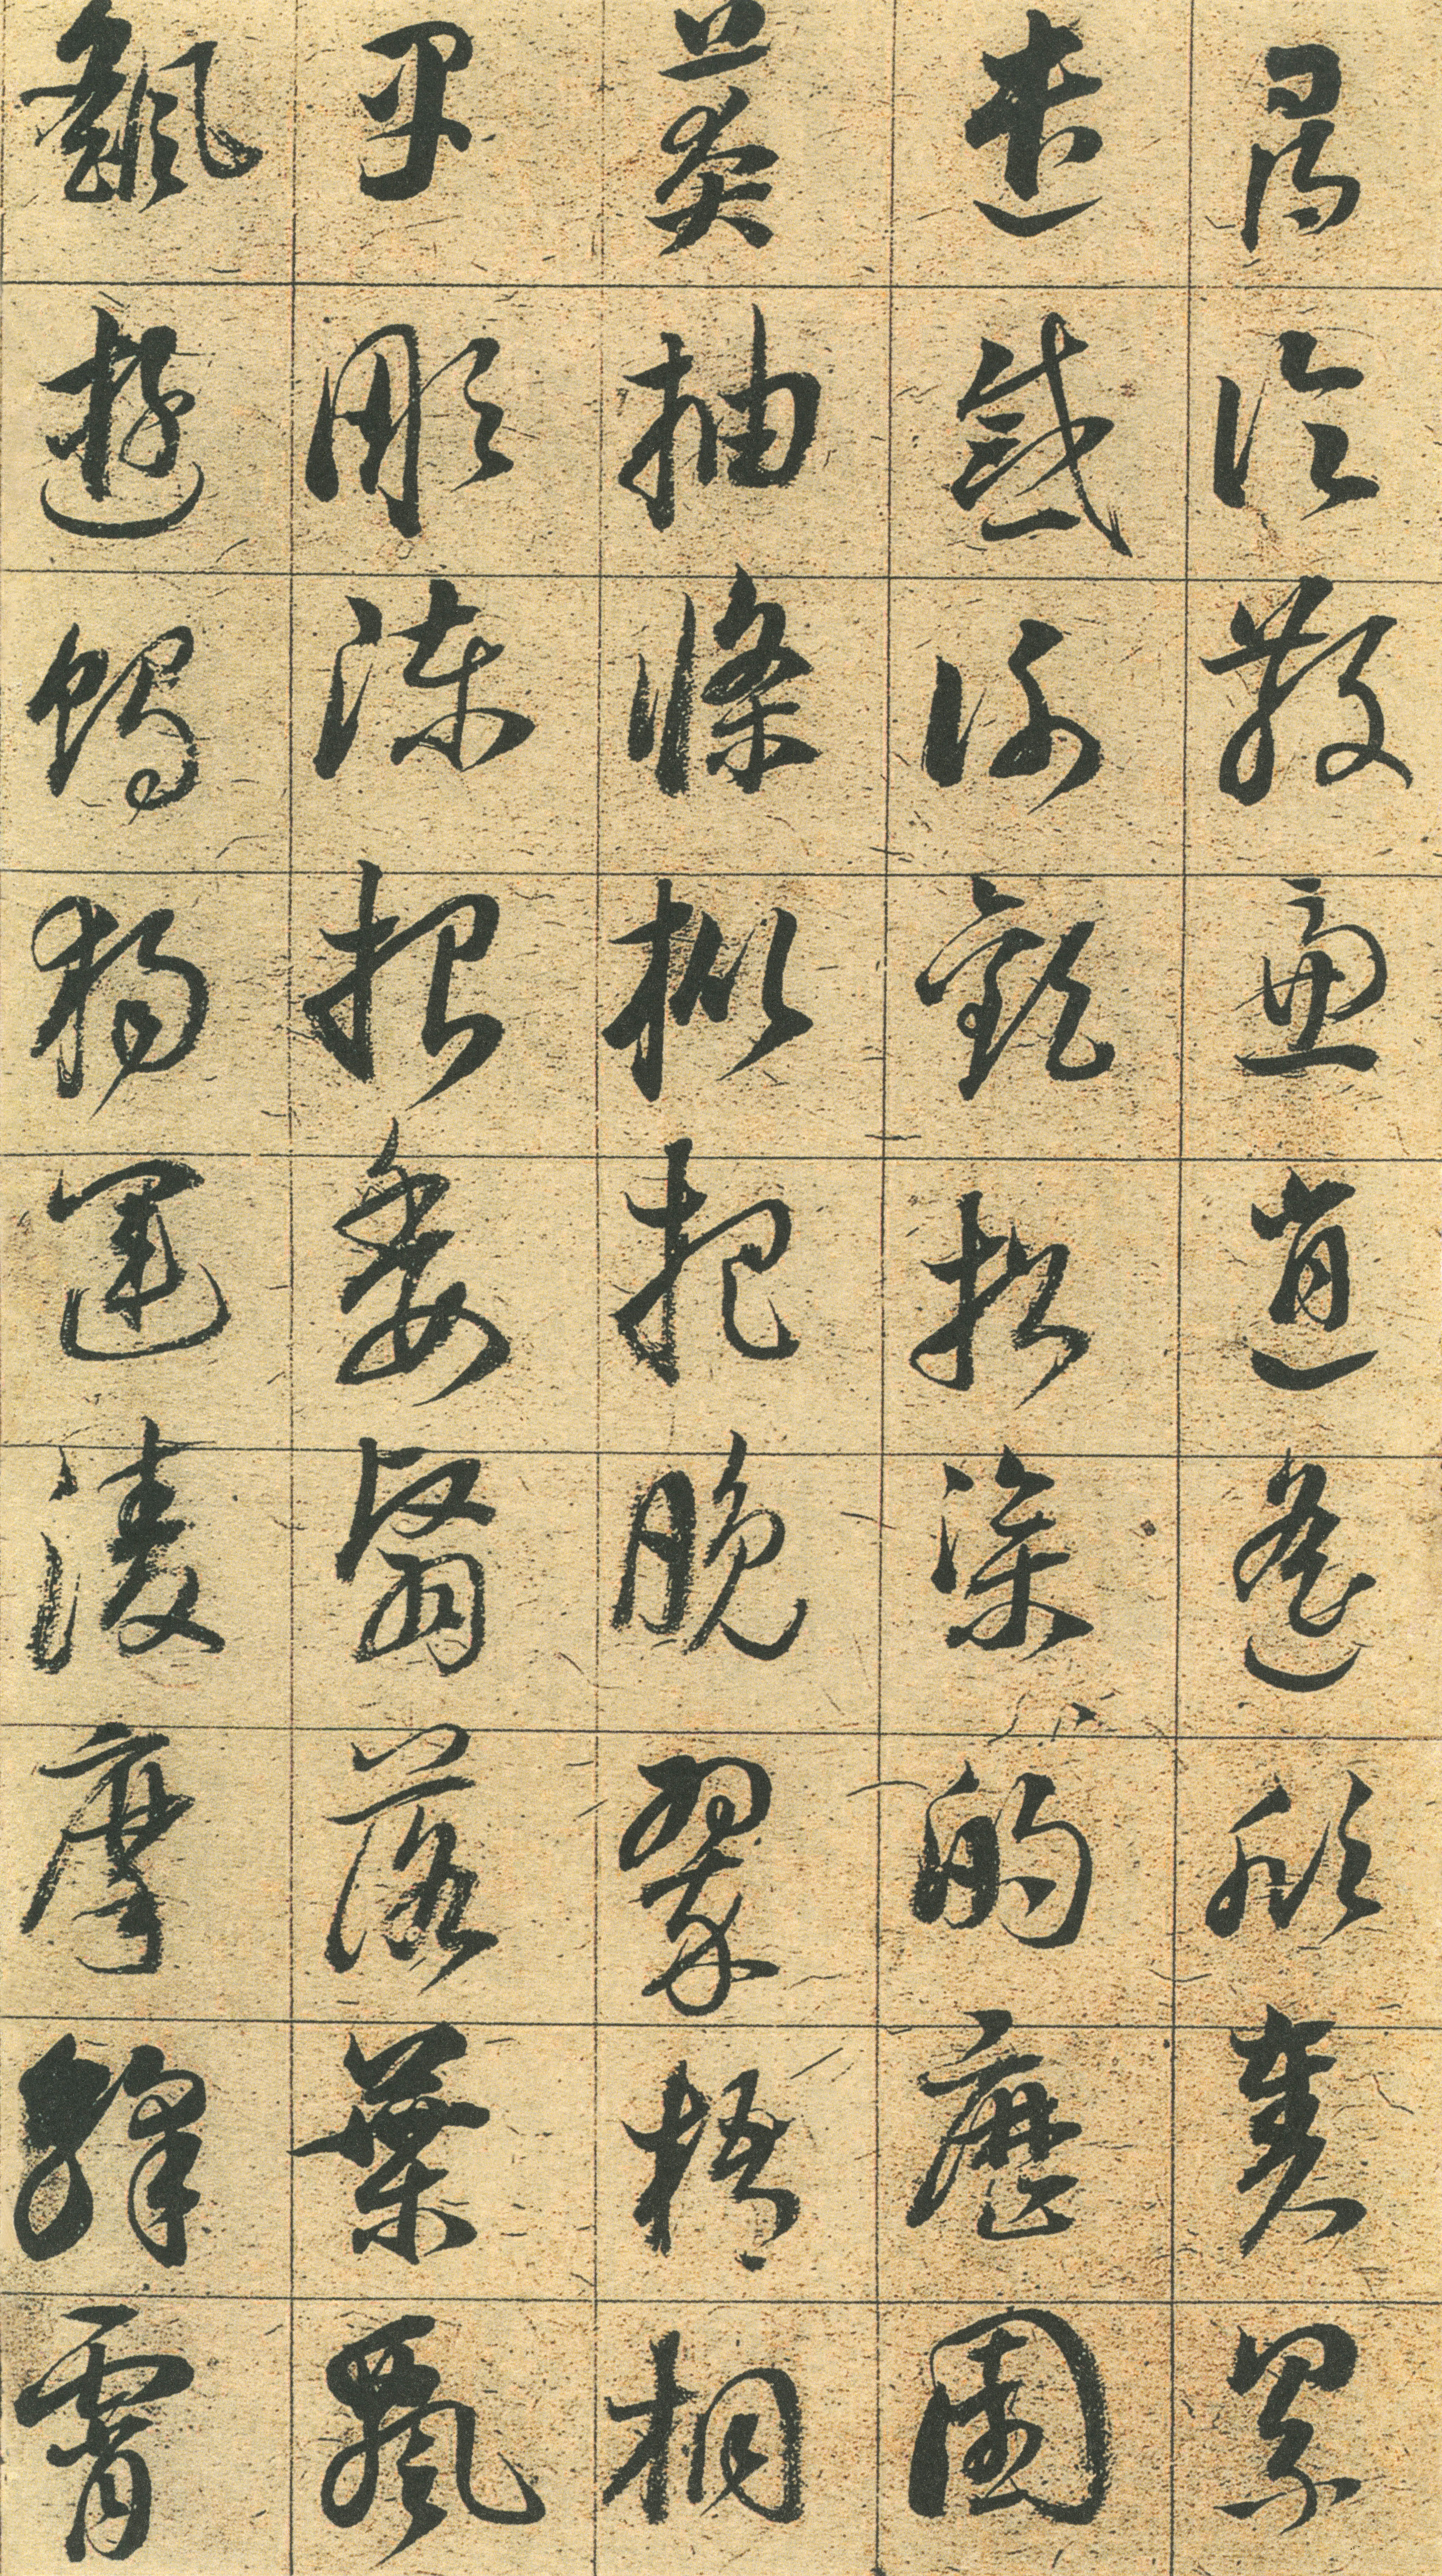 尋論散慮逍遙欣奏累
遣慼謝歡招渠的歷園
莽抽條枇杷晚翠梧桐
早彫陳根委翳落葉飄
颻遊獨運淩摩絳霄